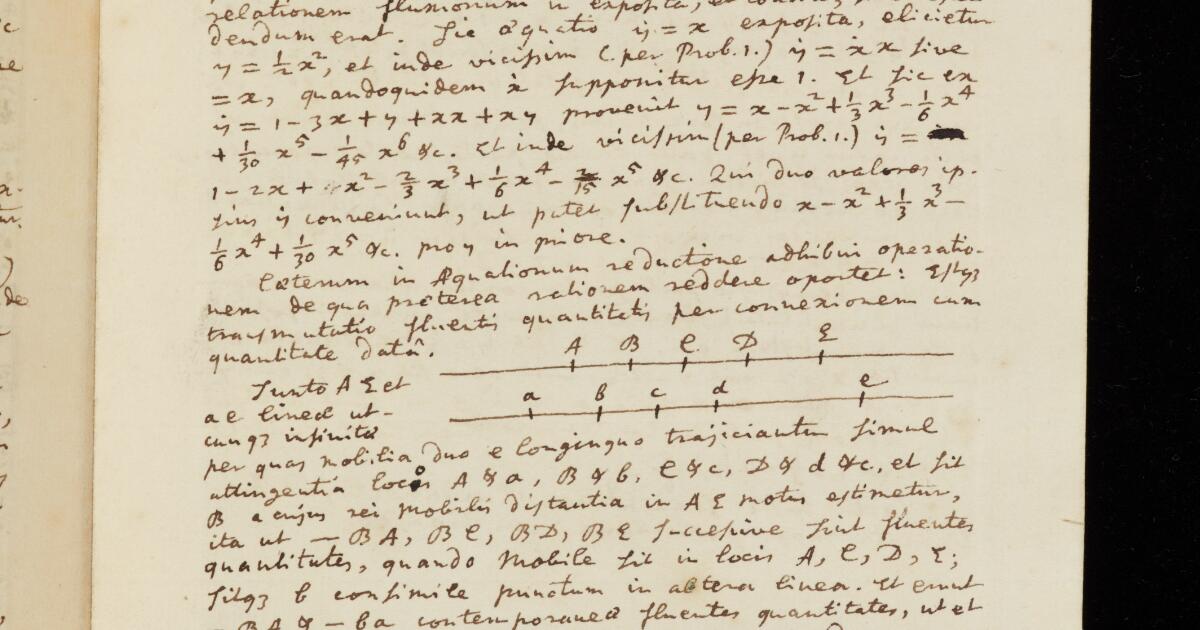 relationem fluxionum
dendum erat. Sic æquatio ẏ = x exposita, elicietur
y = ½x², et inde vicissim (per Prob. 1.) ẏ = ẋx sive
= x, quandoquidem ẋ supponitur esse 1. Et sic ex
ẏ = 1 − 3x + y + xx + xy provenit y = x − x² + ⅓x³ − ⅙x⁴
+ 1/30 x⁵ − 1/45 x⁶ &c. Et inde vicissim (per Prob. 1.) ẏ =
1 − 2x + x² − ⅔x³ + ⅙x⁴ − 2/15 x⁵ &c. Qui duo valores ip-
sius ẏ conveniunt, ut patet substituendo x − x² + ⅓x³ −
⅙x⁴ + 1/30 x⁵ &c. pro y in priore.
Cæterum in Æquationum reductione adhibui operatio-
nem de qua præterea rationem reddere oportet: Estqꝫ
transmutatio fluentis quantitatis per connexionem cum
quantitate datâ.
A B C D E
Sunto AE et
a b c d e
ae lineæ ut-
cunqꝫ infinitæ
per quas mobilia duo e longinquo trajiciantur simul
attingentia A & a, B & b, C & c, D & d &c, et sit
B a cujus rei mobilis distantia in AE motus estimetur,
ita ut − BA, BC, BD, BE succesive sint fluentes
quantitates, quando mobile sit in locis A, C, D, E;
sitqꝫ b consimile punctum in altera linea. Et erunt
− BA & − ba contemporaneæ fluentes quantitates, ut et